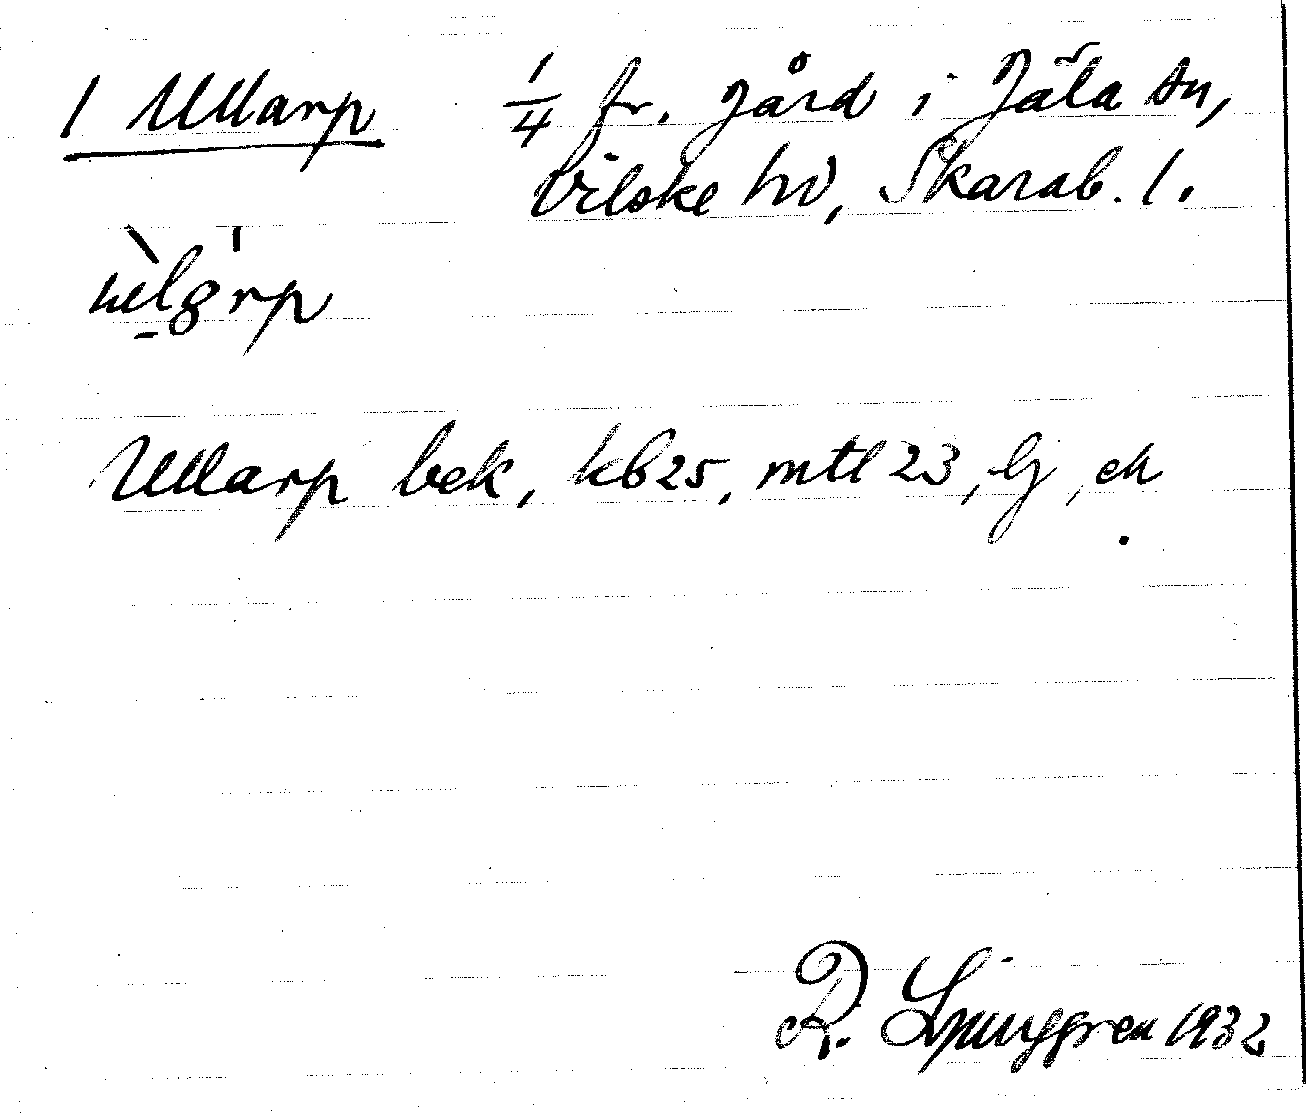 1 Ullarp 1/4 fr. gård i Jäla sn,
Vilske hd, Skarab. l.
Ullarp bek, kb 25, mtl 23, lj, ch
R. Ljunggren 1932